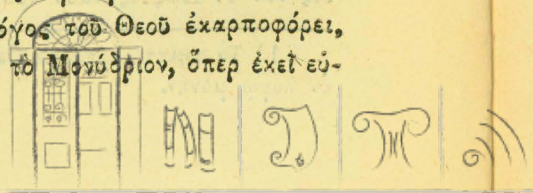 όγος τοῦ Θεοῦ ἐκαρποφόρει,
τὸ Μονύδριον, ὅπερ ἐκεῖ εὑ-